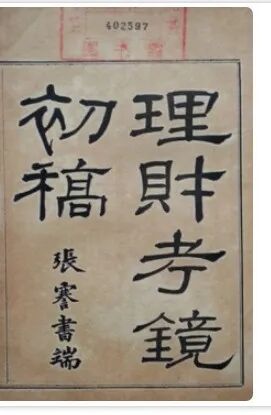 402597
理財考鏡
初稿
張謇書端